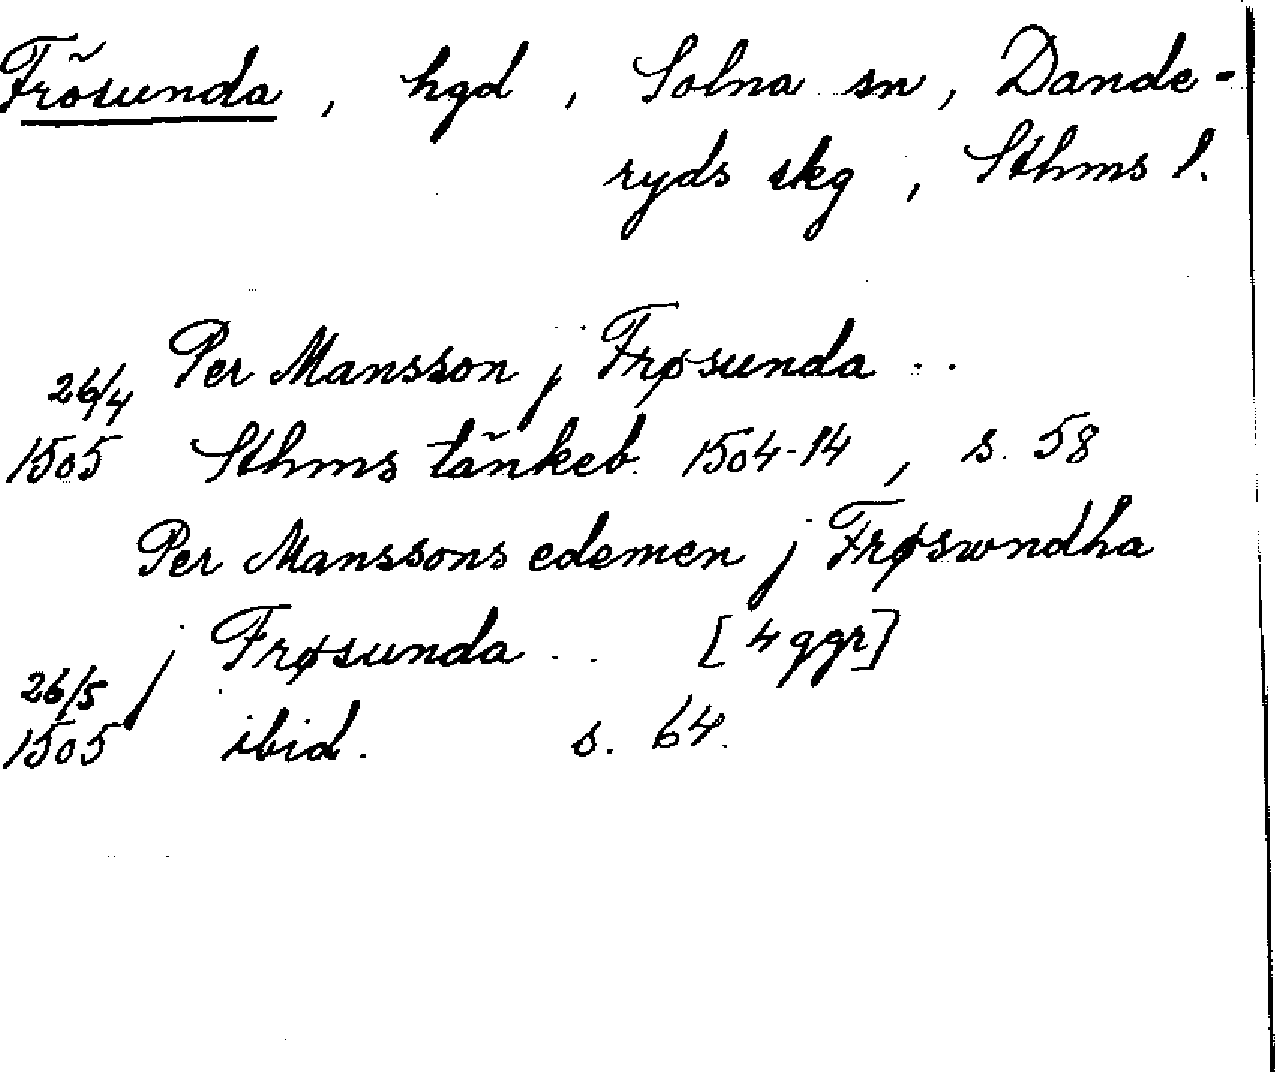 Frösunda, hgd, Solna sn, Dande-
ryds skg, Sthms l.
Per Mansson j Frøsunda ..
26/4
1505 Sthms tänkeb. 1504-14, s. 58
Per Manssons edemen j Frøswndha
j Frøsunda .. [4 ggr]
26/5
1505 ibid. s. 64.